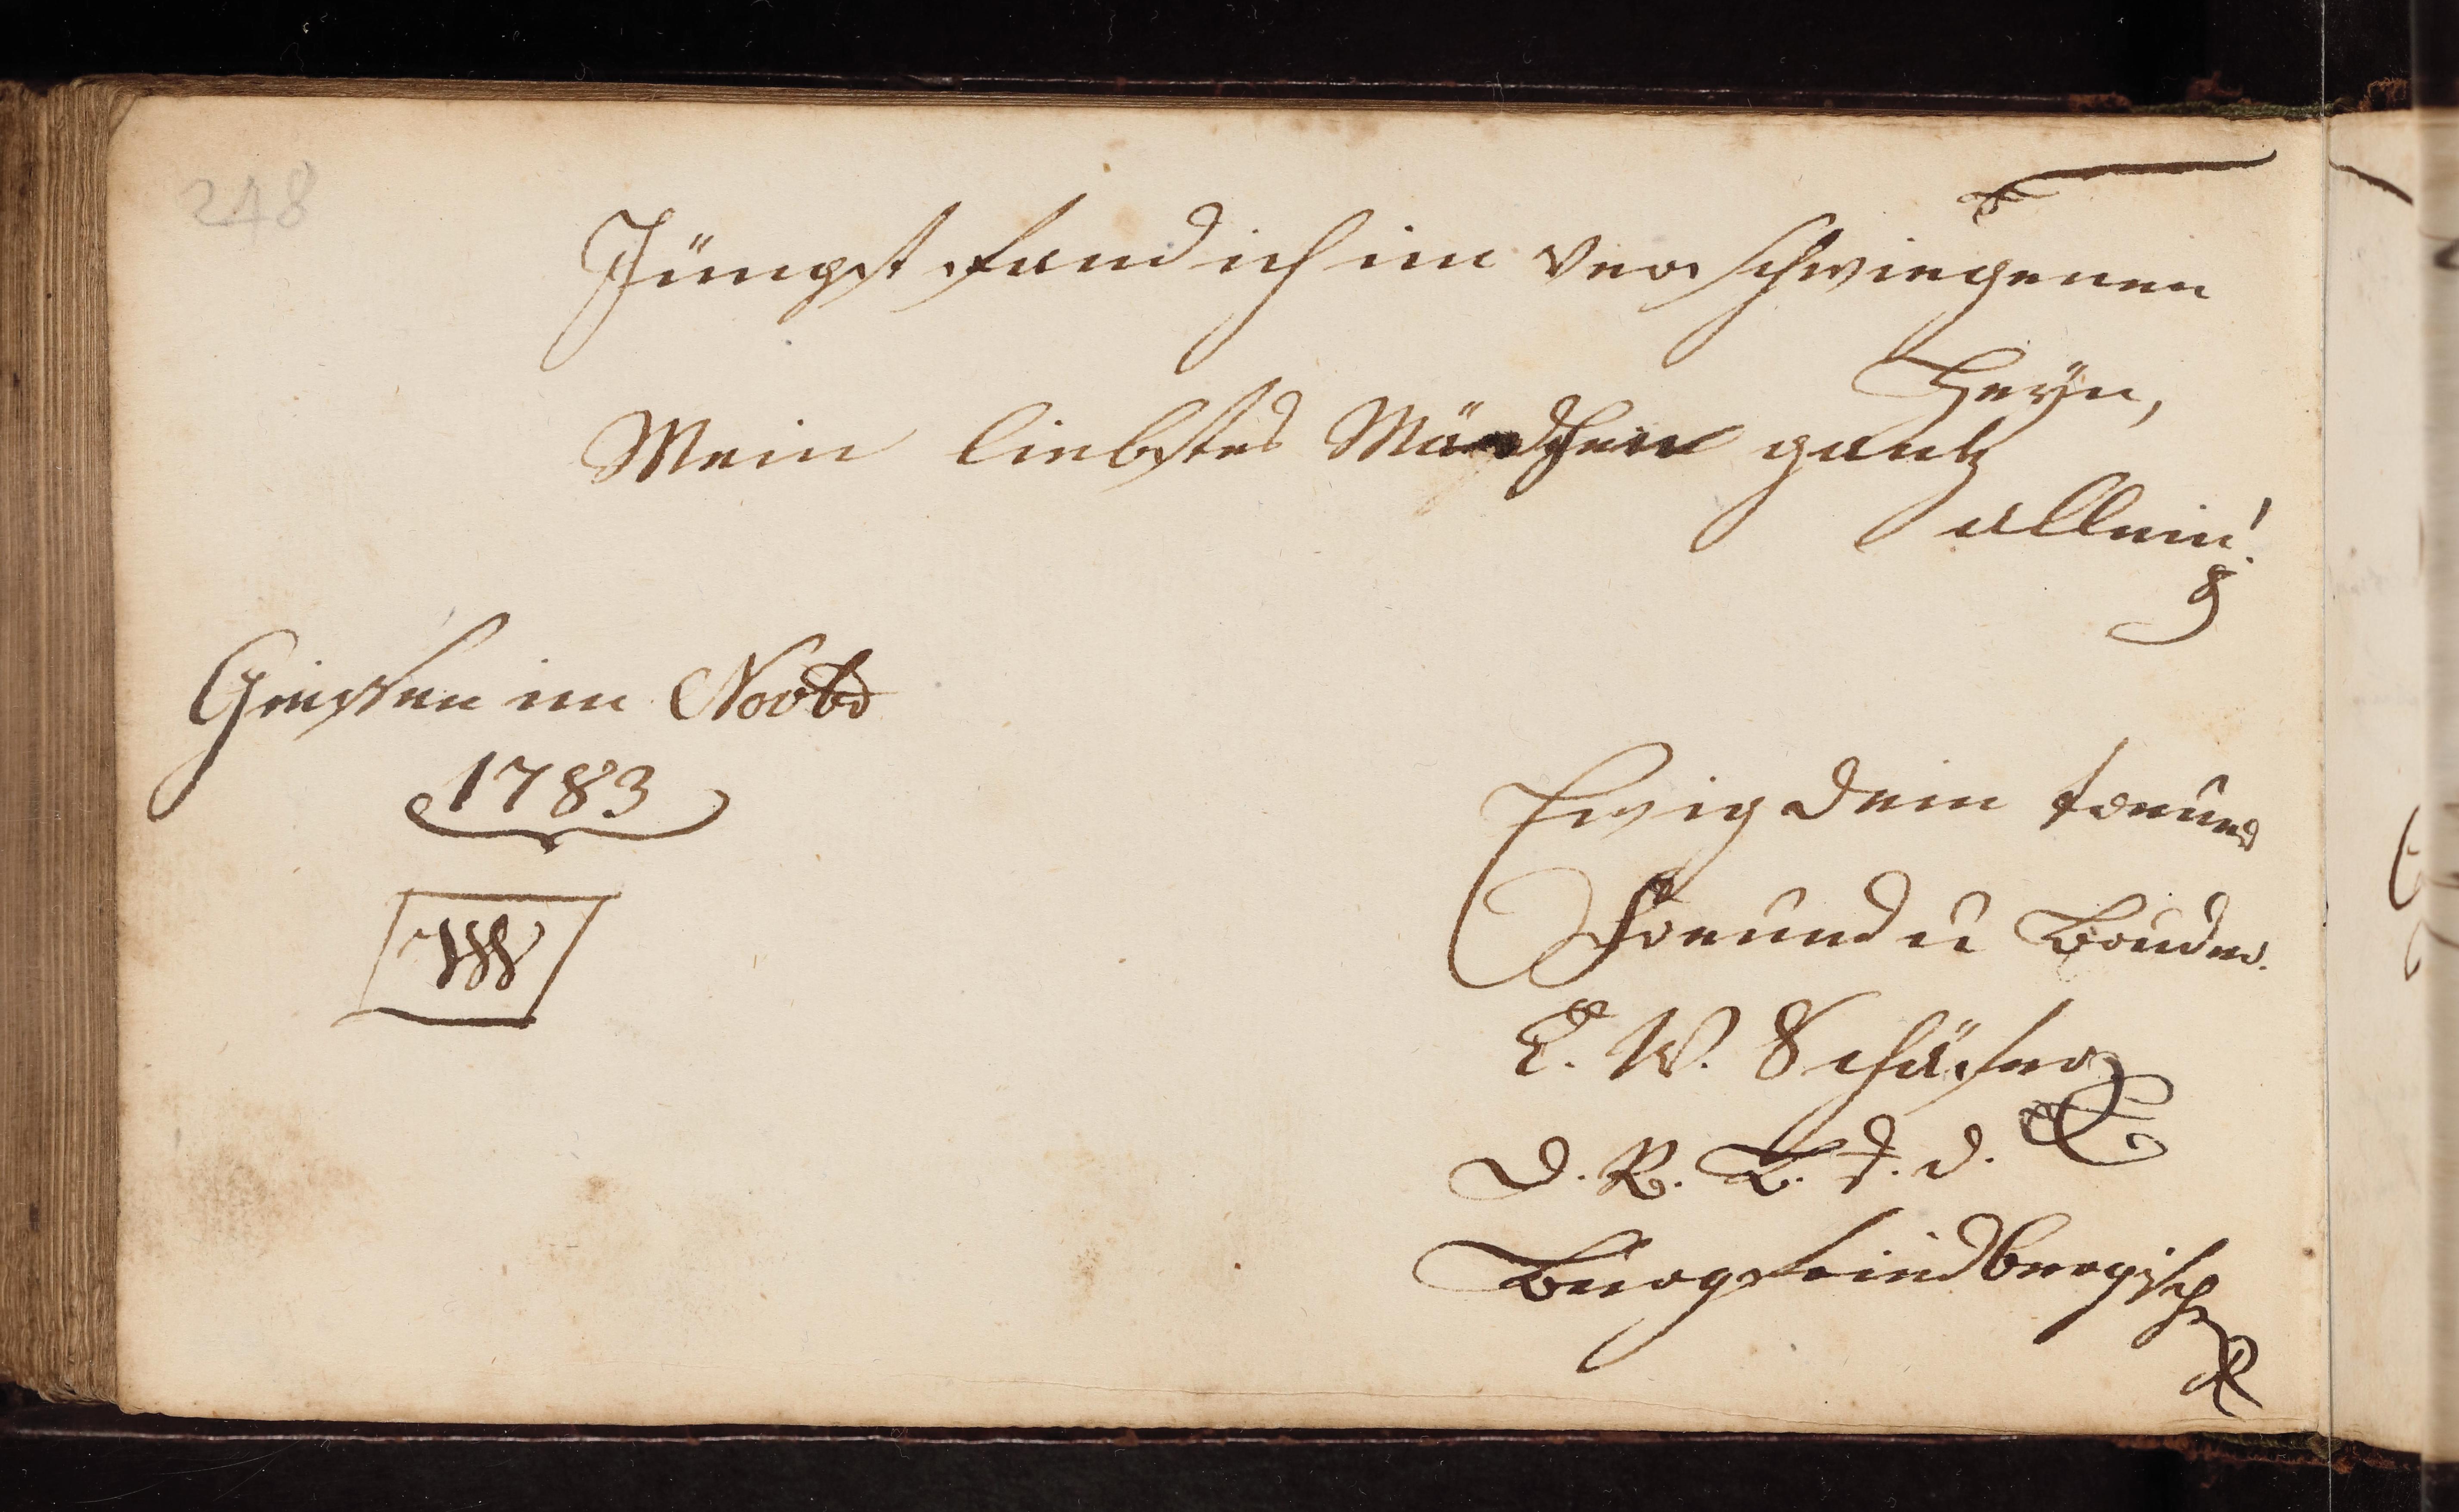 248
Jüngst fand ich im verschwiegenen
Heyn,
Mein liebstes Mädchen gantz
allein!
Giessen im Novbr
1783
Ewig dein treuer
Freund u Bruder.
E. W. Schäfer
D. R. B. d.
Burgfriedbergisch